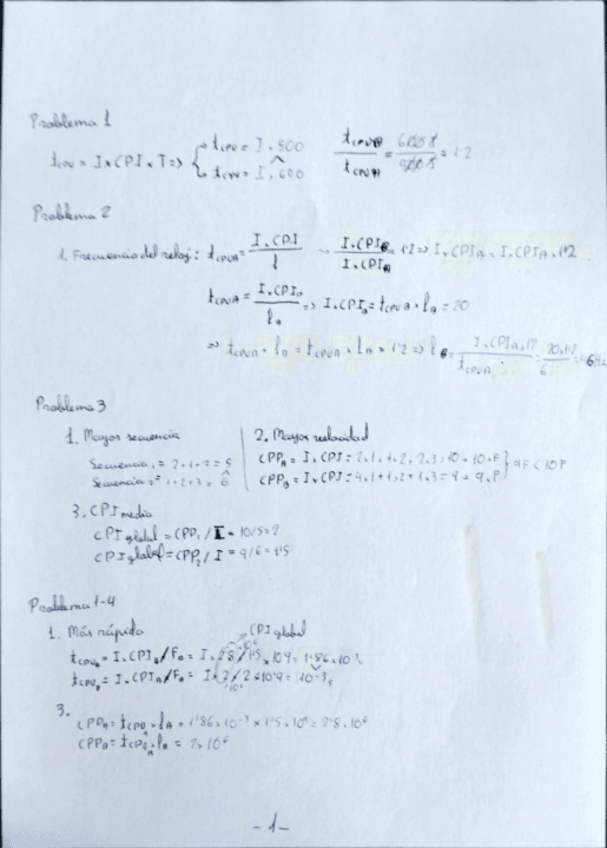 Problema 1
tcpu = I x CPI x T => tcpu = I . 500
tcpu = I . 600
tcpuB / tcpuA = 600 / 500 = 1'2
Problema 2
1. Frecuencia del reloj: tcpuA = I.CPI / f → I.CPIB / I.CPIA = 1'2 => I.CPIB = I.CPIA . 1'2
tcpuA = I.CPIA / fA => I.CPIA = tcpuA . fA = 20
=> tcpuB . fB = tcpuA . fA x 1'2 => fB = I.CPIA.1'2 / tcpuB = 20.1'2 / 6 =
Problema 3
1. Mayor secuencia
Secuencia 1 = 2+1+2 = 5
Secuencia 2 = 1+2+3 = 6
2. Mayor velocidad
CPPA = I.CPI = 2.1+1.2+2.3 = 10 = 10.P
CPPB = I.CPI = 4.1+1.2+1.3 = 9 = 9.P
9P < 10P
3. CPI medio
CPI global = CPP1 / I = 10/5 = 2
CPI global = CPP2 / I = 9/6 = 1'5
Problema 1-4
1. Más rápida
CPI global
tcpuA = I.CPIA/FA = I x 2'8 / 1'5 x 10^9 = 1'86 x 10^-3
tcpuB = I.CPIA/FB = I x 2 / 2 x 10^9 = 10^-3
3.
CPPA = tcpuA . fA = 1'86 x 10^-3 x 1'5 x 10^9 = 2'8 . 10^6
CPPB = tcpuA . fB = 2 x 10^6
- 1 -